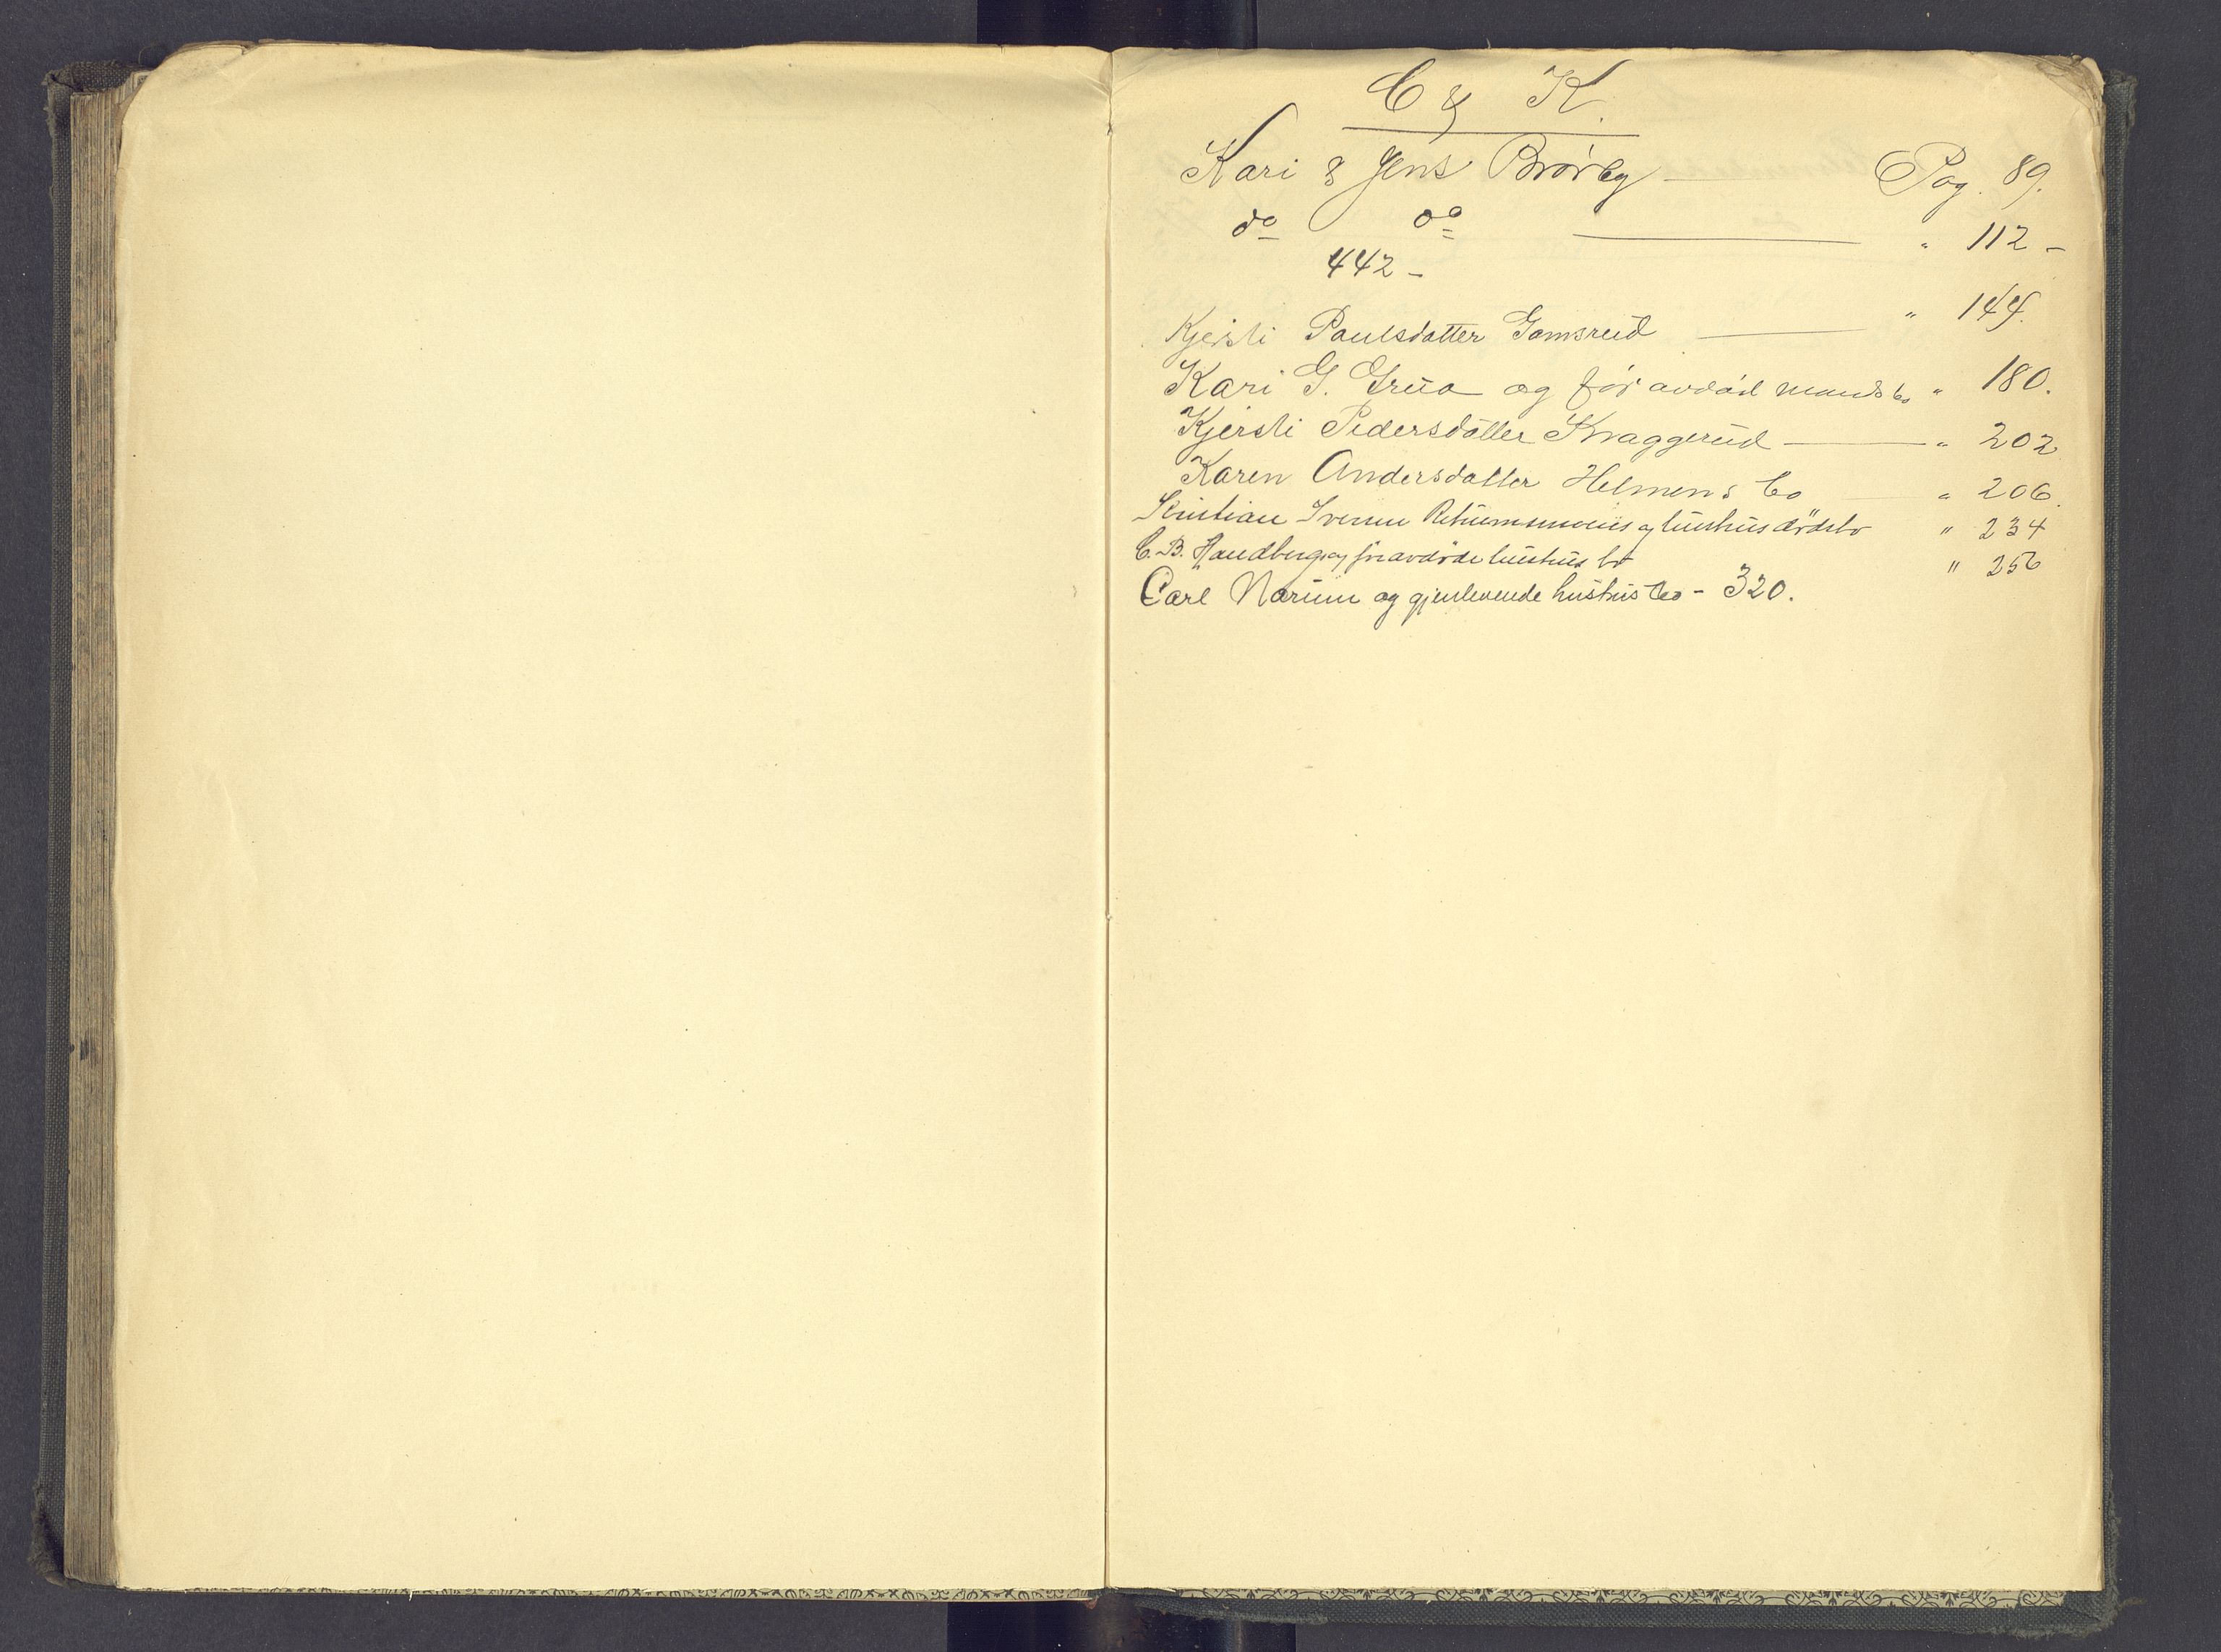 C & K.
Kari & Jens Brørby Pag. 89.
do do " 112 -
442 -
Kjersti Paulsdatter Gamsrud " 144.
Kari G. Grua og før avdød mands bo " 180.
Kjersti Pedersdatter Knaggerud " 202
Karen Andersdatter Helmens bo " 206.
Kristian Iversen og hustrus dødsbo " 234
C. B. Sandberg og føravdøde hustrus bo " 256
Carl Narum og gjenlevende hustrus bo - 320.